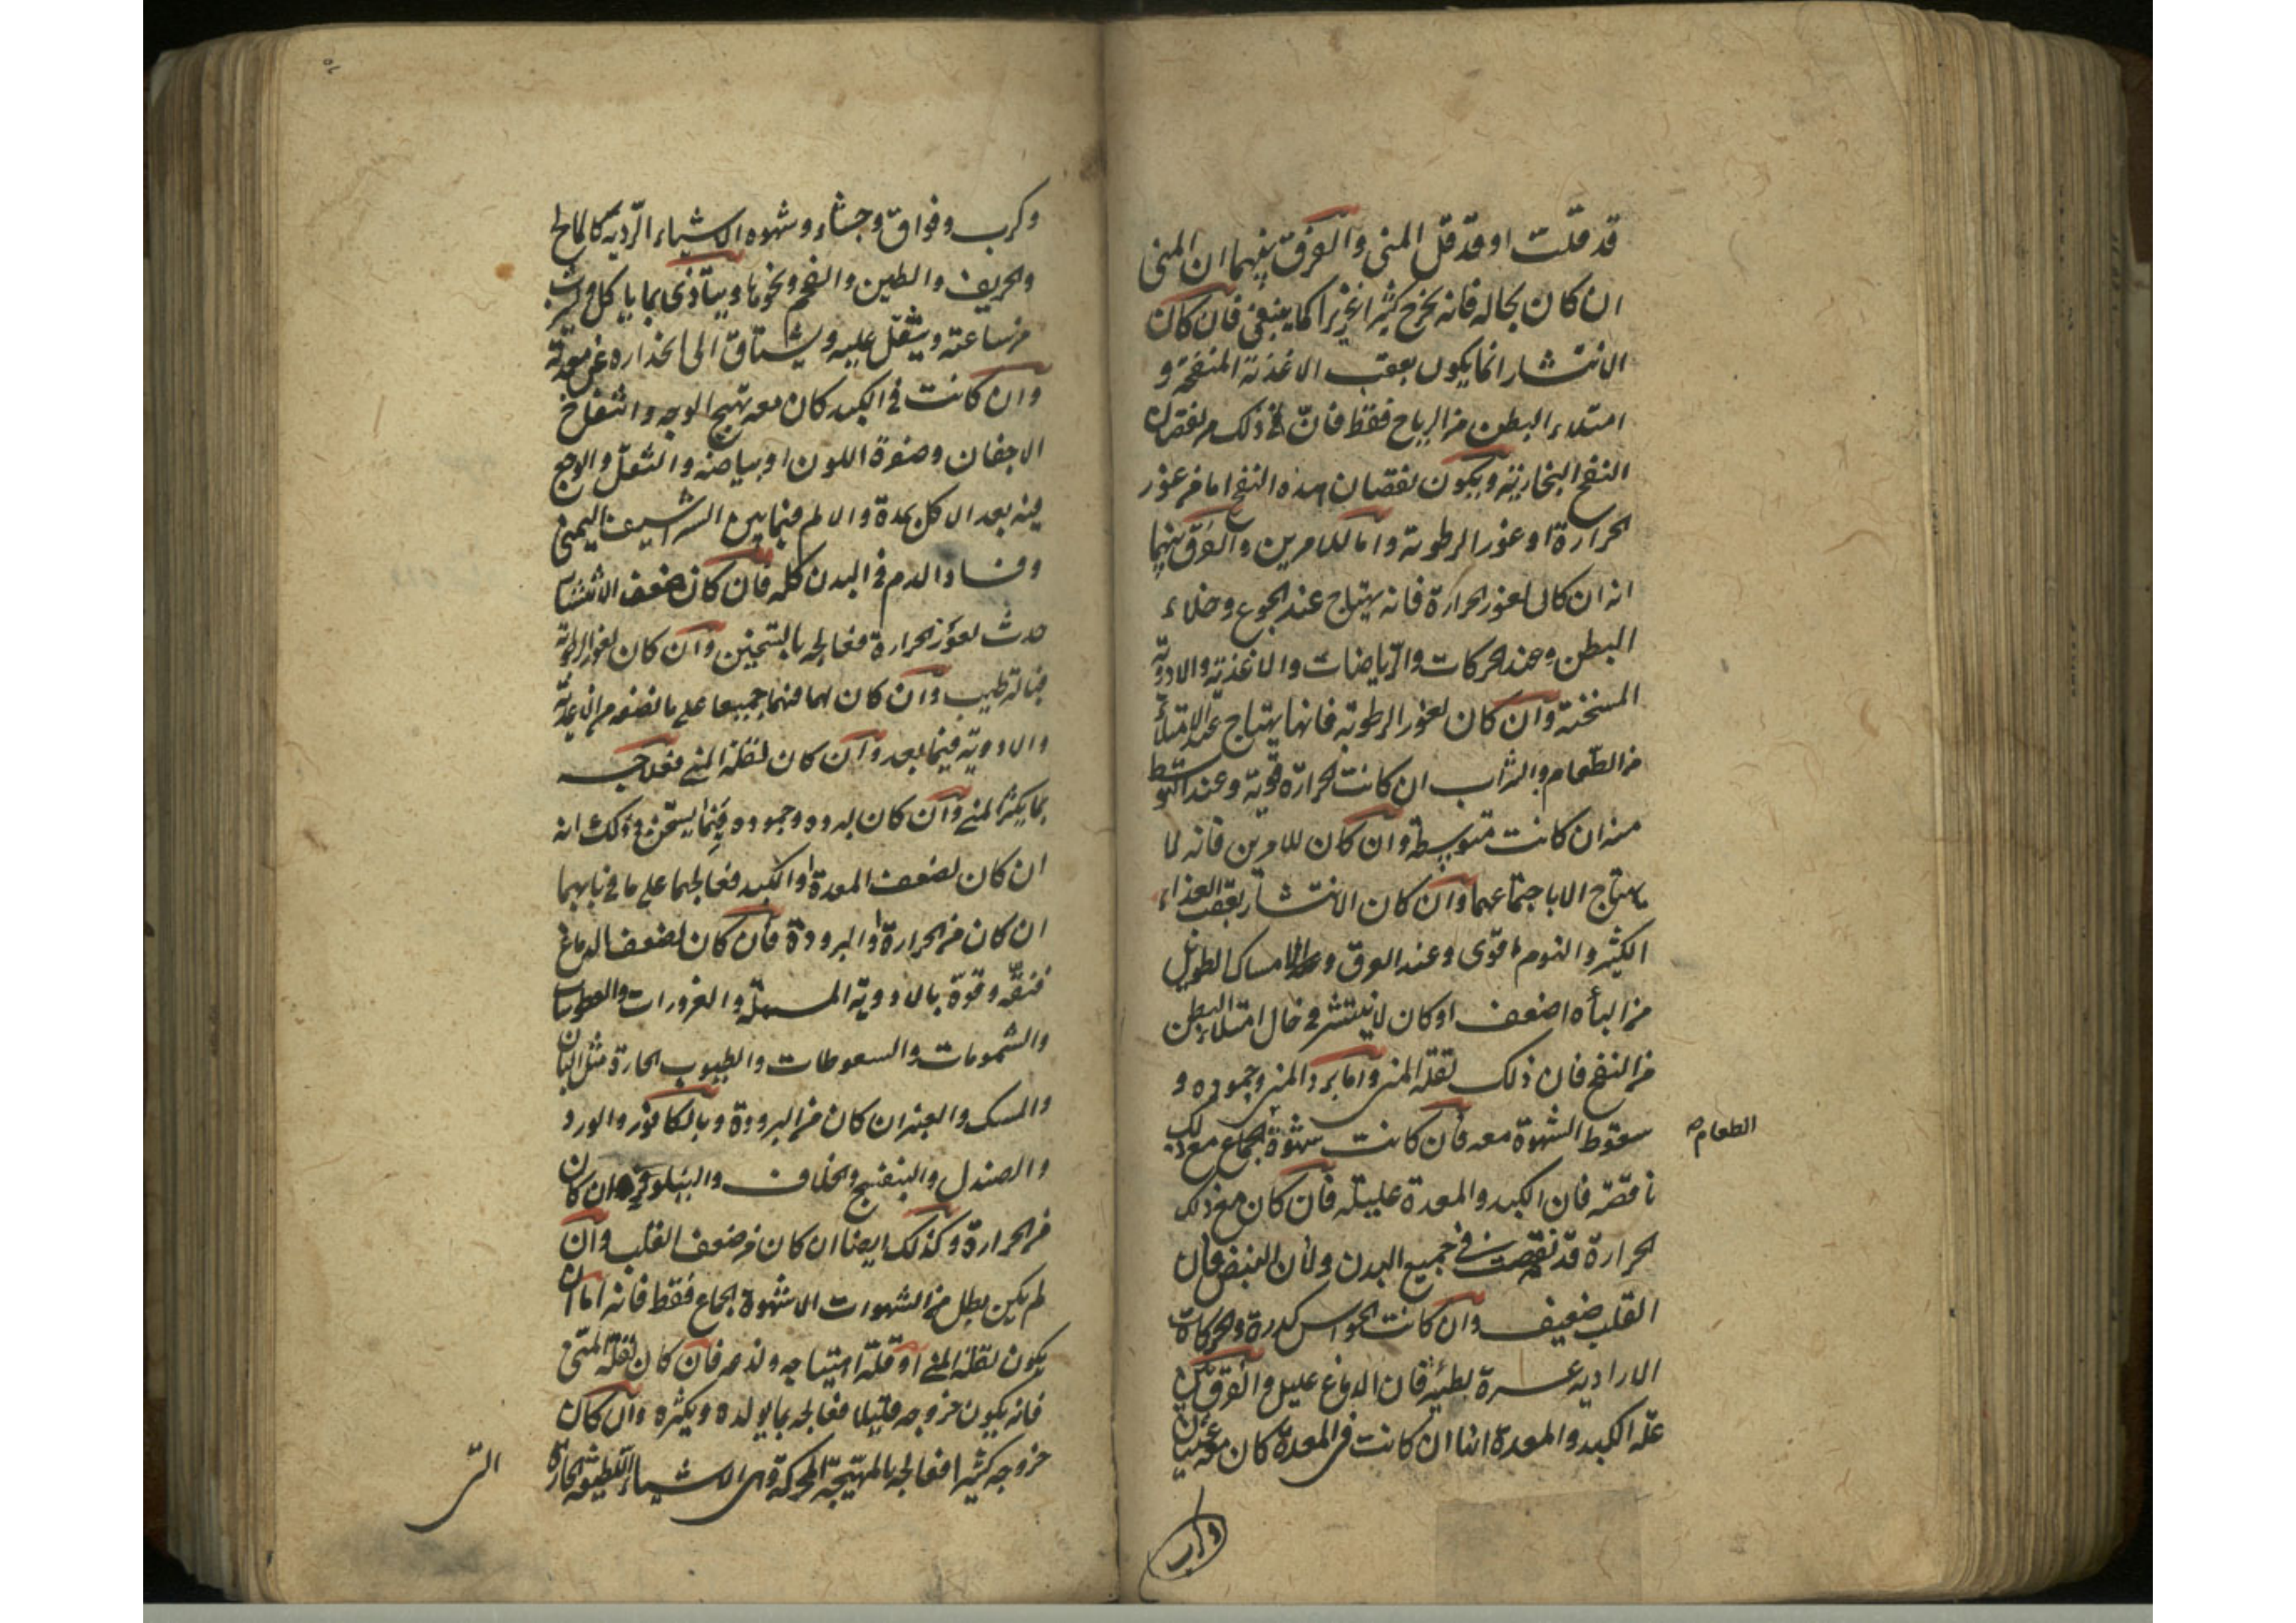 قد قلت او قد قل المنى والفرق بينهما ان المنى
ان كان بحاله فانه يخرج كثيرا غزيرا كما ينبغى فان كان
الانتشار انما يكون بعقب الاغذية المنفخة و
امتلاء البطن من الرياح فقط فان ذلك من نقصان
النفخ البخارية ويكون نقصان هذه النفخ اما من عوز
الحرارة او عوز الرطوبة واما للامرين والفرق بينهما
انه ان كان لعوز الحرارة فانه يهتاج عند الجوع وخلاء
البطن وعند الحركات والرياضات والاغذية والادوية
المسخنة وان كان لعوز الرطوبة فانها يهتاج عند الامتلاء
من الطعام والشراب ان كانت الحرارة قوية وعند التوسط
منه ان كانت متوسطة وان كان للامرين فانه لما
يهتاج الا باجتماعهما وان كان الانتشار بعقب الغذاء
الكثير والنوم اقوى وعند العرق و الامساك الطويل
من الباه اضعف او كان لا ينتشر فى حال امتلاء البطن
من النفخ فان ذلك لقلة المنى واما برد المنى وجموده و
سقوط الشهوة معه فان كانت شهوة الجماع مع ذلك
الطعام
ناقصة فان الكبد والمعدة عليلة فان كان مع ذلك
الحرارة قد نقصت فى جميع البدن ولان النبض فان
القلب ضعيف وان كانت الحواس كدرة والحركات
الارادية عسرة بطيئة فان الدماغ عليل والفرق بين
علة الكبد والمعدة انها ان كانت فى المعدة كان معه غثيان
وكرب
وكرب وفواق وجشاء وشهوه الاشياء الردية كالمالح
والحريف والطين والفحم ونحوها ويتاذى بما ياكل ويشرب
من ساعته ويثقل عليه ويشتاق الى انحداره عن معدته
وان كانت فى الكبد كان معه تهيج الوجه وانتفاخ
الاجفان وصفرة اللون او بياضه والثقل والوجع
فيه بعد الاكل بمدة والالم فيما بين الشراسيف اليمنى
وفساد الدم فى البدن كله فان كان ضعف الانتشار
حدث لعوز الحرارة فعالجه بالتسخين وان كان لعوز الرطوبة
فبالترطيب وان كان لهما فبهما جميعا على ما نصفه من الاغذية
والادوية فيما بعد وان كان لقلة المنى فعلاجه
بما يكثر المنى وان كان لبرده وجموده فبما يسخن وذلك انه
ان كان لضعف المعدة او الكبد فعالجهما على ما فى بابهما
ان كان من الحرارة او البرودة فان كان لضعف الدماغ
فنقه وقوة بالادوية المسهلة والغرورات والعطوسات
والشمومات والسعوطات والطيوب الحارة مثل البان
والمسك والعنبر ان كان من البرودة وبالكافور والورد
والصندل والبنفسج والخلاف والنيلوفر ان كان
من الحرارة وكذلك ايضا ان كان من ضعف القلب وان
لم يكن بطل من الشهوات الا شهوة الجماع فقط فانه اما ان
يكون لقلة المنى او قلة اهتياجه ولذعه فان كان لقلة المنى
فانه يكون خروجه قليلا فعالجه بما يولده ويكثره وان كان
خروجه كثيرا فعالجه بالمهيجة المحركة وهى الاشياء اللطيفة الحارة